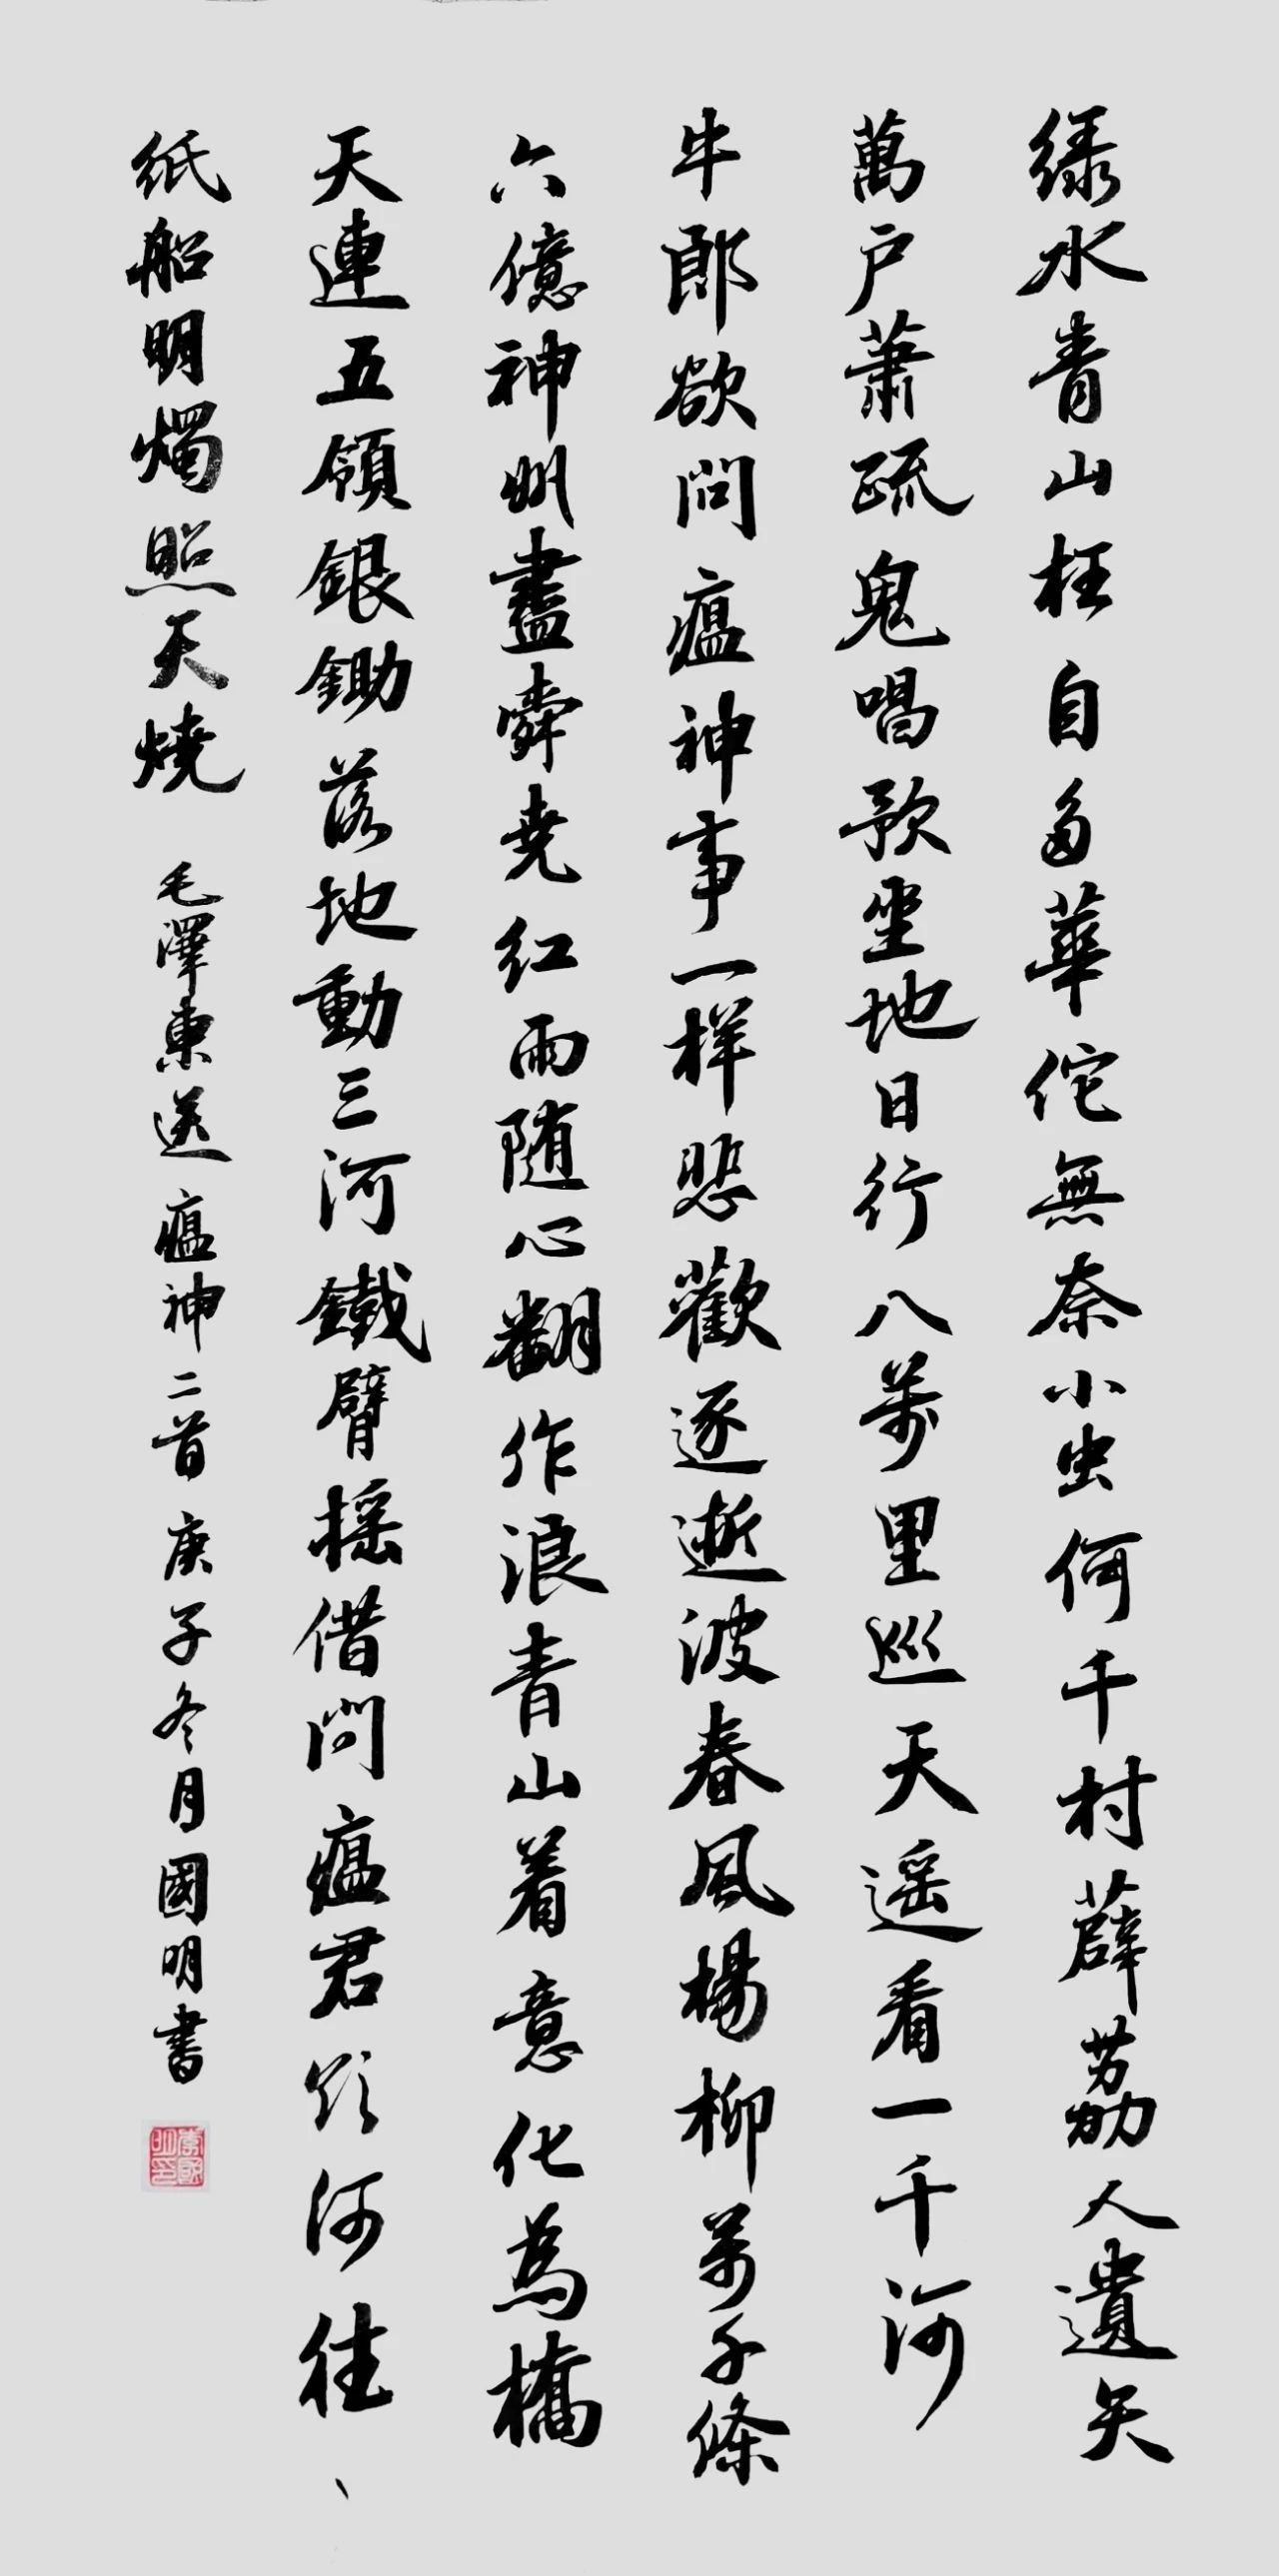 緑水青山枉自多華佗無奈小虫何千村薜荔人遺矢
萬户蕭疏鬼唱歌坐地日行八萬里巡天遥看一千河
牛郎欲問瘟神事一樣悲歡逐逝波春風楊柳萬千條
六億神明盡舜堯红雨随心翻作浪青山着意化為橋
天連五領銀鋤落地動三河鐵臂摇借問瘟君欲何往、
纸船明燭照天燒 毛澤東送瘟神二首 庚子冬月國明書
李國明印